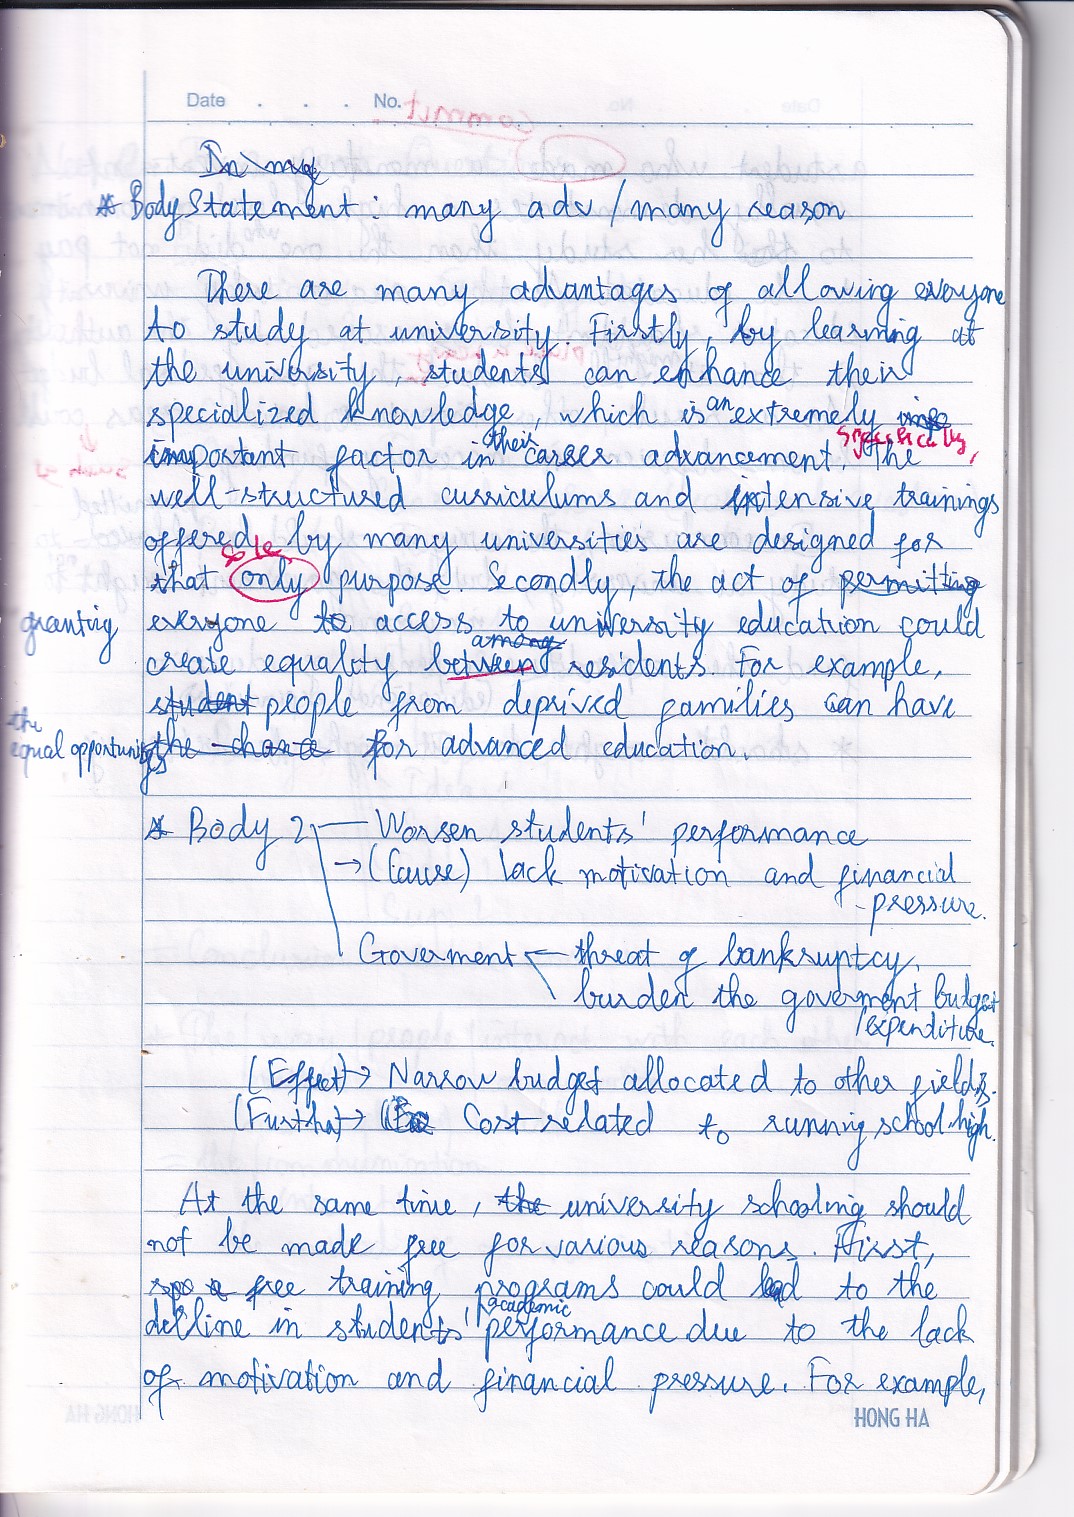 Date . . . No.
In my
* Body Statement : many adv / many reason
There are many advantages of allowing everyone
to study at university. Firstly, by learning at
the university, students can enhance their
specialized knowledge, which is an extremely
specifically,
important factor in their career advancement. The
well-structured curriculums and intensive trainings
offered by many universities are designed for
sole
that only purpose. Secondly, the act of permitting
granting everyone to access to university education could
among
create equality between residents. For example,
student people from deprived families can have
the
equal opportunities the chance for advanced education.
* Body 2 — Worsen students' performance
→ (Cause) lack motivation and financial
pressure.
Goverment threat of bankruptcy.
burden the goverment budget
/expenditure.
(Effect) → Narrow budget allocated to other fields.
(Further) → Cost related to running school high.
At the same time, the university schooling should
not be made free for various reasons. First,
free training programs could lead to the
academic
decline in students' performance due to the lack
of motivation and financial pressure. For example,
HONG HA